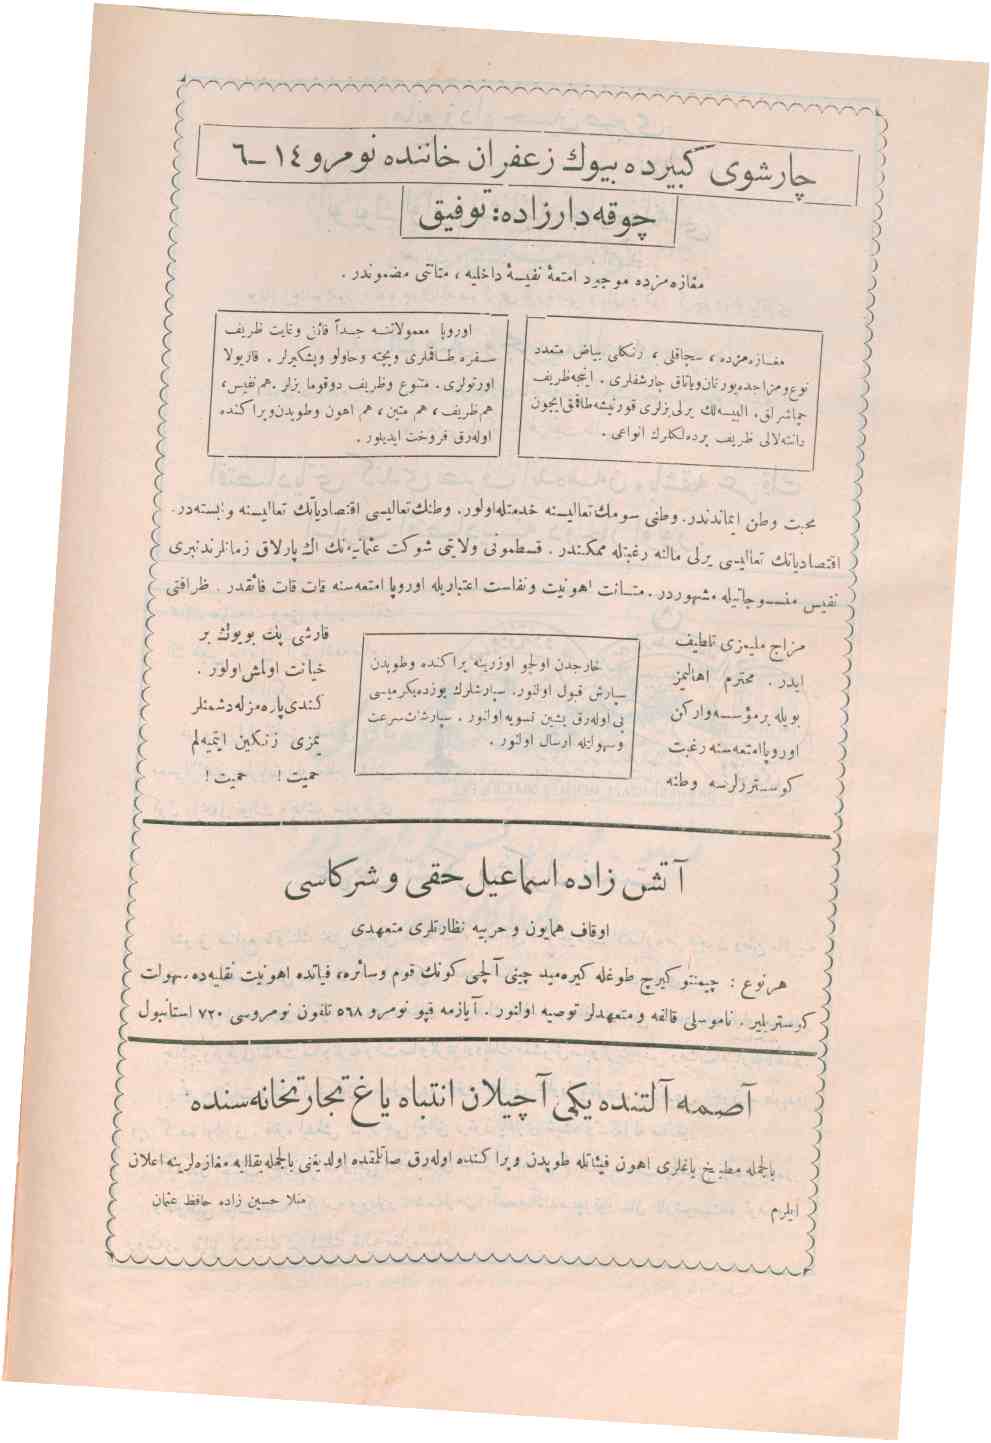 چارشوی كبیرده بیوك زعفران خاننده نومرو ١٤ــ٦
چوقه‌دارزاده: توفیق
مغازه‌مزده موجود امتعهٔ نفیسهٔ داخلیه ، متانتی مضموندر .
مغازه‌مزده ، سجاقلی ، رنكلی بیاض متعدد
نوع ومزاجده یورغان ویاتاق چارشفلری . اینجه ظریف
چماشرلق . البیسه‌لك یرلی بزلری قورنیشه طاقمق ایچون
دانته‌لالی ظریف پرده‌لكلرك انواعی .
اوروپا معمولاتنه جداً فائق وغایت ظریف
سفره طاقملری وبچته وحاولو وپشكیرلر . قاریولا
اورتولری . متنوع وظریف دوقوما بزلر . هم نفیس ،
هم ظریف ، هم متین ، هم اهون وطوپدن وپراكنده
اوله‌رق فروخت ایدیلور .
محبت وطن ایماندندر . وطنی سومك تعالیسنه خدمتله اولور . وطنك تعالیسی اقتصادیاتك تعالیسنه وابسته‌در .
اقتصادیاتك تعالیسی یرلی مالنه رغبتله ممكندر . قسطمونی ولایتی شوكت عثمانیه‌نك اك پارلاق زمانلرندنبری
نفیس منسوجاتیله مشهوردر . متانت اهونیت ونفاست اعتباریله اوروپا امتعه‌سنه قات قات فائقدر . ظرافتی
مزاج ملیمزی تلطیف
ایدر . محترم اهالیمز
بویله بر مؤسسه واركن
اوروپا امتعه‌سنه رغبت
كوسترزلرسه وطنه
خارجدن اولچو اوزرینه پراكنده وطوپدن
سپارش قبول اولنور . سپارشلرك یوزده یكرمیسی
پی اوله‌رق پشین تسویه اولنور . سپارشات سرعت
وسهولتله ارسال اولنور .
قارشی پك بویوك بر
خیانت اولمش اولور .
كندی پاره‌مزله دشمنلر
یمزی زنكین ایتمیه‌لم
حمیت ! حمیت !
آتش زاده اسماعیل حقی و شركاسی
اوقاف همایون و حربیه نظارتلری متعهدی
هر نوع : چیمنتو كیرج طوغله كیره‌مید چینی آلچی كونك قوم وسائره ، فیاتده اهونیت نقلیه‌ده سهولت
كوستر بلیر . ناموسلی قالفه و متعهدلر توصیه اولنور . آیازمه قپو نومرو ٥٦٨ تلفون نومروسی ٧٢٠ استانبول
آصمه آلتنده یكی آچیلان انتباه یاغ تجارتخانه‌سنده
بالجمله مطبخ یاغلری اهون فیئاتله طوپدن وپراكنده اوله‌رق صاتلمقده اولدیغنی بالجمله بقالیه مغازه‌لرینه اعلان
ایلرم
منلا حسین زاده حافظ عثمان